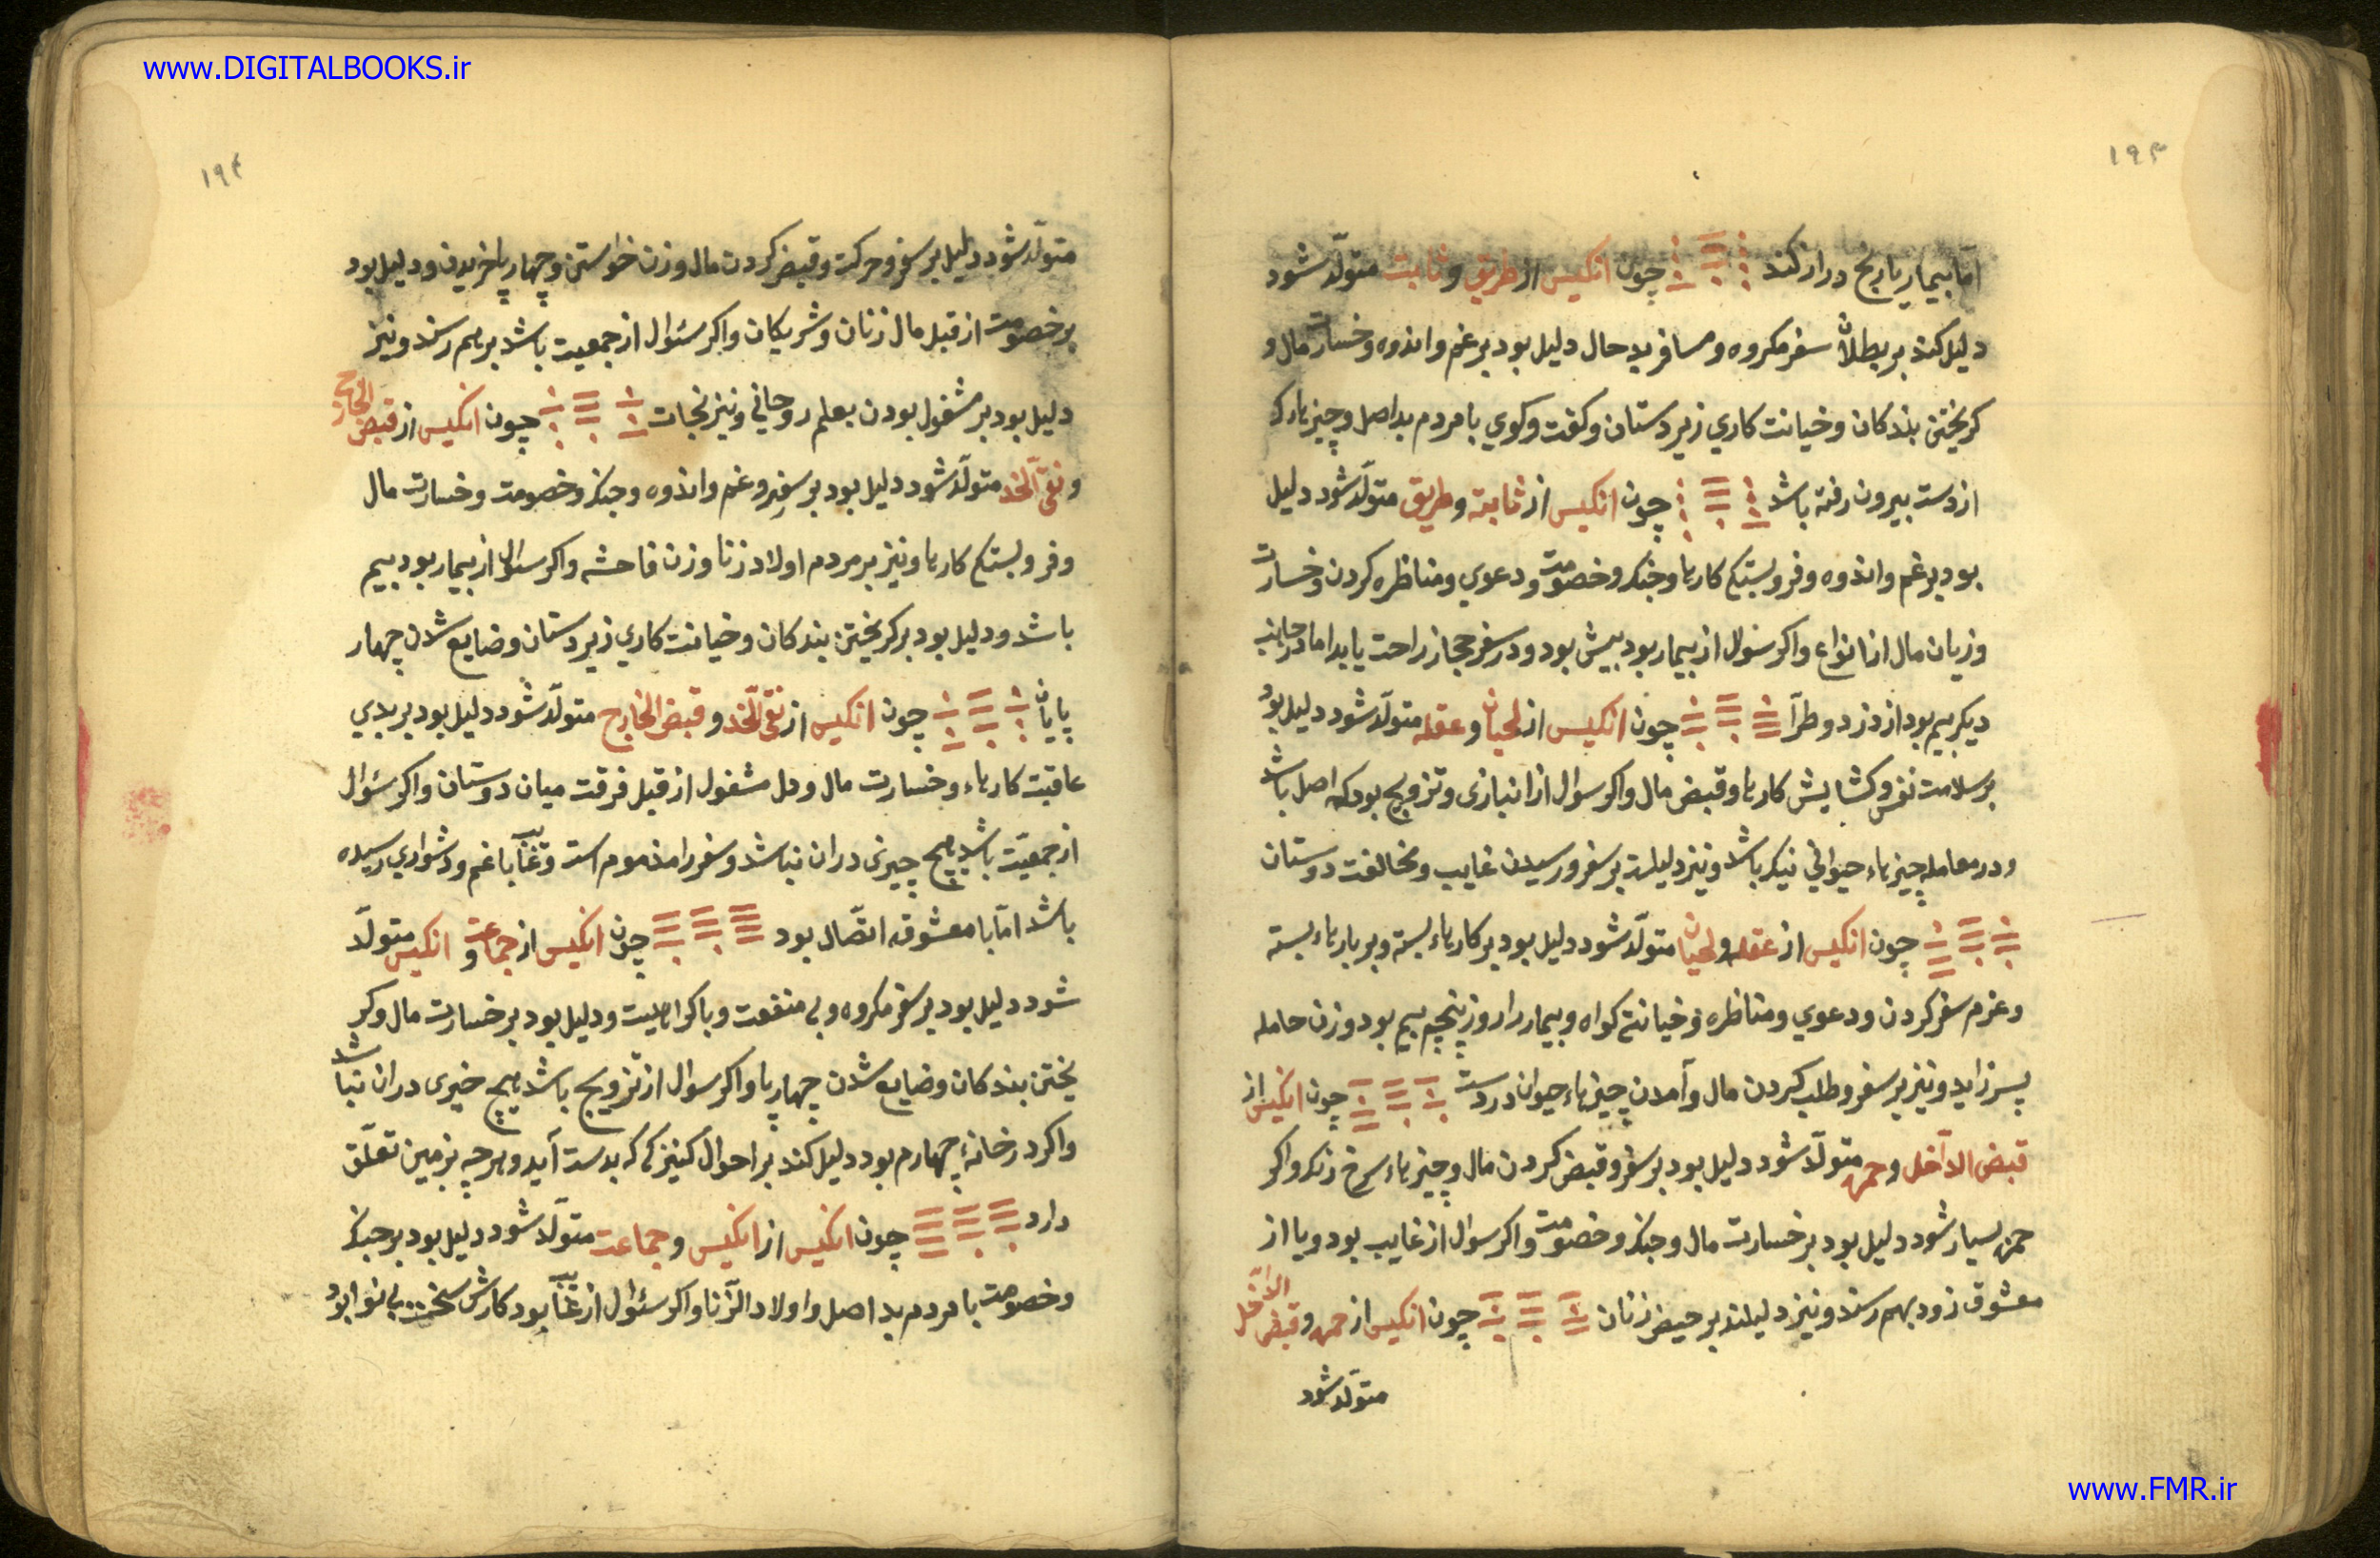 www.DIGITALBOOKS.ir
١٩٣
اما بیمار یا رنج دراز کند چون انکیس از طریق و ثابت متولّد شود
دلیل کند بر بطلان سفر مکروه و مسافر بد حال دلیل بود بر غم و اندوه و خسارت مال و
کریختن بندکان و خیانت کاری زیردستان و کفت و کوی با مردم بد اصل و چیزها که
از دست بیرون رفته باشد چون انکیس از ثابته و طریق متولّد شود دلیل
بود بر غم و اندوه و فرو بستکی کارها و جنک و خصومت و دعوی و مناظره کردن و خسارت
و زیان مال از انواع و اکر سئوال از بیمار بود بیمش بود و در سفر حجاز راحت یابد اما در جانب
دیکر بیم بود از دزد و طرآ چون انکیس از لحیان و عقله متولّد شود دلیل بود
بر سلامت نفس و کشایش کارها و قبض مال و اکر سوال از انبازی و تزویج بود که اصل باشد
و در معامله چیزهاء حیوانی نیک باشد و نیز دلیلست بر سفر و رسیدن غایب و مخالفت دوستان
چون انکیس از عقله و لحیان متولّد شود دلیل بود بر کارهاء بسته و بر بارهاء بسته
و عزم سفر کردن و دعوی و مناظره و خیانتی کواه و بیمار را روز پنجم بیم بود و زن حامله
پسر زاید و نیز بر سفر و طلب کردن مال و آمدن چیزهاء حیوان درست چون انکیس از
قبض الداخل و حمره متولّد شود دلیل بود بر سفر و قبض کردن مال و چیزهاء سرخ رنک و اکر
حمره بسیار شود دلیل بود بر خسارت مال و جنک و خصومت و اکر سوال از غایب بود و یا از
معشوق زود بهم رسند و نیز دلیلند بر حیض زنان چون انکیس از حمره و قبض الداخل
متولّد شود
١٩۴
متولّد شود دلیل بر سفر و حرکت و قبض کردن مال و زن خواستن و چهارپا خریدن و دلیل بود
بر خصومت از قبل مال زنان و شریکان و اکر سئوال از جمعیت باشد بر هم رسند و نیز
دلیل بود بر مشغول بودن بعلم روحانی و نیز نجات چون انکیس از قبض الخارج
و نقی الخد متولّد شود دلیل بود بر سفر و غم و اندوه و جنک و خصومت و خسارت مال
و فرو بستکی کارها و نیز بر مردم اولاد زنا و زن فاحشه و اکر سئوال از بیمار بود بیم
باشد و دلیل بود بر کریختن بندکان و خیانت کاری زیردستان و ضایع شدن چهار
پایان چون انکیس از نقی الخد و قبض الخارج متولّد شود دلیل بود بر بدی
عاقبت کارهاء و خسارت مال و دل مشغول از قبل فرقت میان دوستان و اکر سئوال
از جمعیّت باشد هیچ چیزی در ان نباشد و سفر را مذموم است و غایب با غم و دشواری رسیده
باشد امّا با معشوقه اتّصال بود چون انکیس از جماعت و انکیس متولّد
شود دلیل بود بر سفر مکروه و بی منفعت و با کراهیت و دلیل بود بر خسارت مال و کر
یختن بندکان و ضایع شدن چهارپا و اکر سوال از تزویج باشد هیچ خیری در ان نباشد
و اکر در خانهٔ چهارم بود دلیل کند بر احوال کنیزکی که بدست آید و هرچه بزمین تعلّق
دارد چون انکیس از انکیس و جماعت متولّد شود دلیل بود بر جنک
و خصومت با مردم بد اصل و اولاد الزّنا و اکر سئوال از غایب بود کارش سخت بی نوا بود
www.FMR.ir